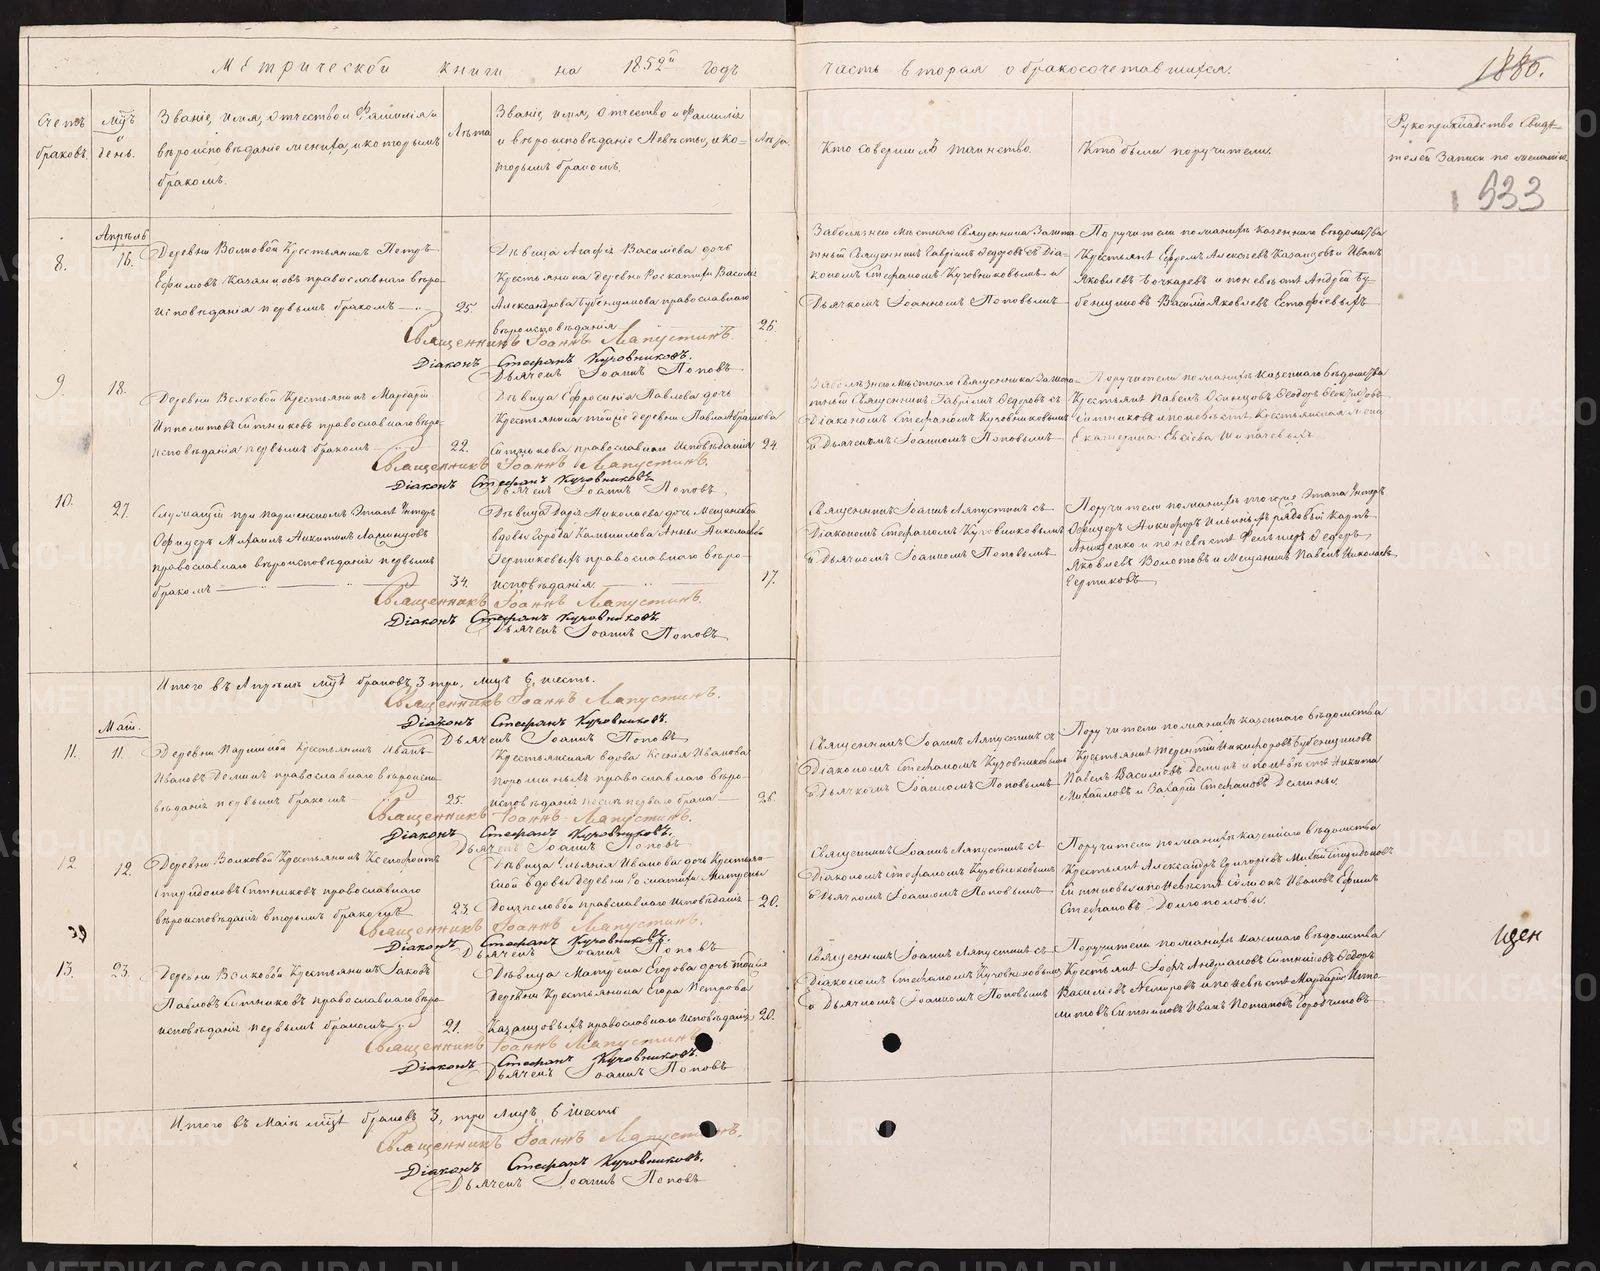 Метрической книги на 1852й годъ
часть вторая о бракосочетавшихся.
1880.
533
Счетъ браковъ.
Мцъ и день.
Званіе, имя, отчество и фамилія и
вѣроисповѣданіе жениха, и которымъ
бракомъ.
Лѣта
Званіе, имя, отчество и фамилія
и вѣроисповѣданіе невѣсты, и ко-
торымъ бракомъ.
Лѣта.
Кто совершалъ таинство.
Кто были поручители.
Рукоприкладство свидѣ-
телей записи по желанію.
Апрѣль
8.
16.
Деревни Волковой Крестьянинъ Петръ
Ефимовъ Казанцовъ православнаго вѣро-
исповѣданія первымъ бракомъ
25.
Дѣвица Агафія Васильева дочь
Крестьянина деревни Роскатихи Василія
Александрова Бубенщикова православнаго
вѣроисповѣданія
25
Заболѣзнею мѣстнаго Священника Зашта-
тный Священникъ Гавріилъ Ѳедоровъ съ Діа-
кономъ Стефаномъ Кузовниковымъ и
Дьячкомъ Іоанномъ Поповымъ
Поручители по женихѣ казеннаго вѣдомства
Крестьяне Ефремъ Алексѣевъ Казанцовъ и Иванъ
Яковлевъ Бочкаревъ и по невѣстѣ Андрей Бу-
бенщиковъ Василій Яковлевъ Естафіевыхъ
Священникъ Іоаннъ Ляпустинъ.
Діаконъ Стефанъ Кузовниковъ.
Дьячекъ Іоаннъ Поповъ
9.
18.
Деревни Волковой Крестьянинъ Мардарій
Ипполитовъ Ситниковъ православнаго вѣро-
исповѣданія первымъ бракомъ
22.
Дѣвица Ефросинія Павлова дочь
Крестьянина тойже деревни Павла Абрамова
Ситникова православнаго исповѣданія
24.
Заболѣзнею мѣстнаго Священника Зашта-
тный Священникъ Гавріилъ Ѳедоровъ съ
Діакономъ Стефаномъ Кузовниковымъ
и Дьячкомъ Іоанномъ Поповымъ
Поручители по женихѣ казеннаго вѣдомства
Крестьяне Павелъ Осинцовъ Ѳеодоръ
Ситниковъ и по невѣстѣ Крестьянская жена
Екатерина
Священникъ Іоаннъ Ляпустинъ.
Діаконъ Стефанъ Кузовниковъ
Дьячекъ Іоаннъ Поповъ
10.
27.
Служащій при Паршенскомъ Этапѣ Унтеръ
Офицеръ Михаилъ Никитинъ
православнаго вѣроисповѣданія первымъ
бракомъ
34.
Дѣвица Дарія Николаева дочь Мещанской
вдовы города Камышлова Анны Николаевой
Сертиковыхъ православнаго вѣро-
исповѣданія.
17.
Священникъ Іоаннъ Ляпустинъ съ
Діакономъ Стефаномъ Кузовниковымъ
и Дьячкомъ Іоанномъ Поповымъ
Поручители по женихѣ тогоже Этапа Унтеръ
Офицеръ Никифоръ рядовый
и по невѣстѣ Фельшеръ Ѳедоръ
Яковлевъ Волотовъ и Мещанинъ Павелъ Николаевъ
Сертиковъ
Священникъ Іоаннъ Ляпустинъ.
Діаконъ Стефанъ Кузовниковъ
Дьячекъ Іоаннъ Поповъ
Итого въ Апрѣлѣ мцѣ браковъ 3 три, лицъ 6, шесть.
Священникъ Іоаннъ Ляпустинъ.
Діаконъ Стефанъ Кузовниковъ.
Дьячекъ Іоаннъ Поповъ
Май.
11.
11.
Деревни Паршиной Крестьянинъ Иванъ
Ивановъ Деминъ православнаго вѣроиспо-
вѣданія первымъ бракомъ
25.
Крестьянская вдова Ксенія Иванова
православнаго вѣро-
исповѣданія послѣ перваго брака
26.
Священникъ Іоаннъ Ляпустинъ съ
Діакономъ Стефаномъ Кузовниковымъ
и Дьячкомъ Іоанномъ Поповымъ
Поручители по женихѣ казеннаго вѣдомства
Крестьяне Терентій Никифоровъ Бубенщиковъ
Павелъ Васильевъ Деминъ и по невѣстѣ Никита
Михайловъ и Захарій Стефановъ Демины.
Священникъ Іоаннъ Ляпустинъ.
Діаконъ Стефанъ Кузовниковъ.
Дьячекъ Іоаннъ Поповъ
12.
12.
Деревни Волковой Крестьянинъ Ксенофонтъ
Спиридоновъ Ситниковъ православнаго
вѣроисповѣданія вторымъ бракомъ
23.
Дѣвица Ульянія Иванова дочь Крестьян-
ской вдовы деревни Роскатихи Матрены
Долгополовой православнаго исповѣданія
20.
Священникъ Іоаннъ Ляпустинъ съ
Діакономъ Стефаномъ Кузовниковымъ
и Дьячкомъ Іоанномъ Поповымъ
Поручители по женихѣ казеннаго вѣдомства
Крестьяне Александръ Григорьевъ Спиридоновъ
Ситниковы и по невѣстѣ Симіонъ Ивановъ Ефимъ
Стефановъ Долгополовы.
Священникъ Іоаннъ Ляпустинъ.
Діаконъ Стефанъ Кузовниковъ.
Дьячекъ Іоаннъ Поповъ
13.
23.
Деревни Волковой Крестьянинъ Іаковъ
Павловъ Ситниковъ православнаго вѣро-
исповѣданія первымъ бракомъ
21.
Дѣвица Матрена Егорова дочь тойже
деревни Крестьянина Егора Петрова
Казанцовыхъ православнаго исповѣданія
20.
Священникъ Іоаннъ Ляпустинъ съ
Діакономъ Стефаномъ Кузовниковымъ
и Дьячкомъ Іоанномъ Поповымъ
Поручители по женихѣ казеннаго вѣдомства
Крестьяне Андріановъ Ситниковъ Ѳедоръ
Васильевъ и по невѣстѣ Мардарій Иппо-
литовъ Ситниковъ Иванъ Потаповъ Городчиковъ
Священникъ Іоаннъ Ляпустинъ
Діаконъ Стефанъ Кузовниковъ.
Дьячекъ Іоаннъ Поповъ
Итого въ Маіѣ мцѣ браковъ 3, три лицъ 6 шесть
Священникъ Іоаннъ Ляпустинъ.
Діаконъ Стефанъ Кузовниковъ.
Дьячекъ Іоаннъ Поповъ
METRIKI.GASO-URAL.RU